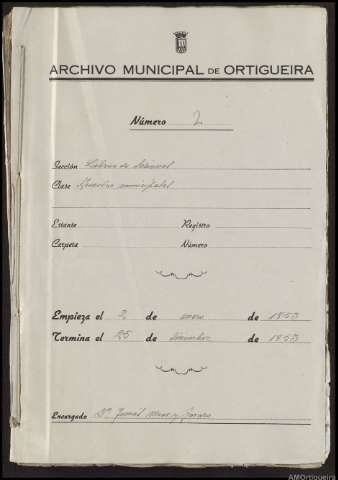 ARCHIVO MUNICIPAL DE ORTIGUEIRA
Número 2
Sección Libros de
Clase Acuerdos municipales
Estante Registro
Carpeta Número
Empieza el 2 de enero de 1853
Termina el 25 de diciembre de 1853
Encargado Dº
AMOrtigueira